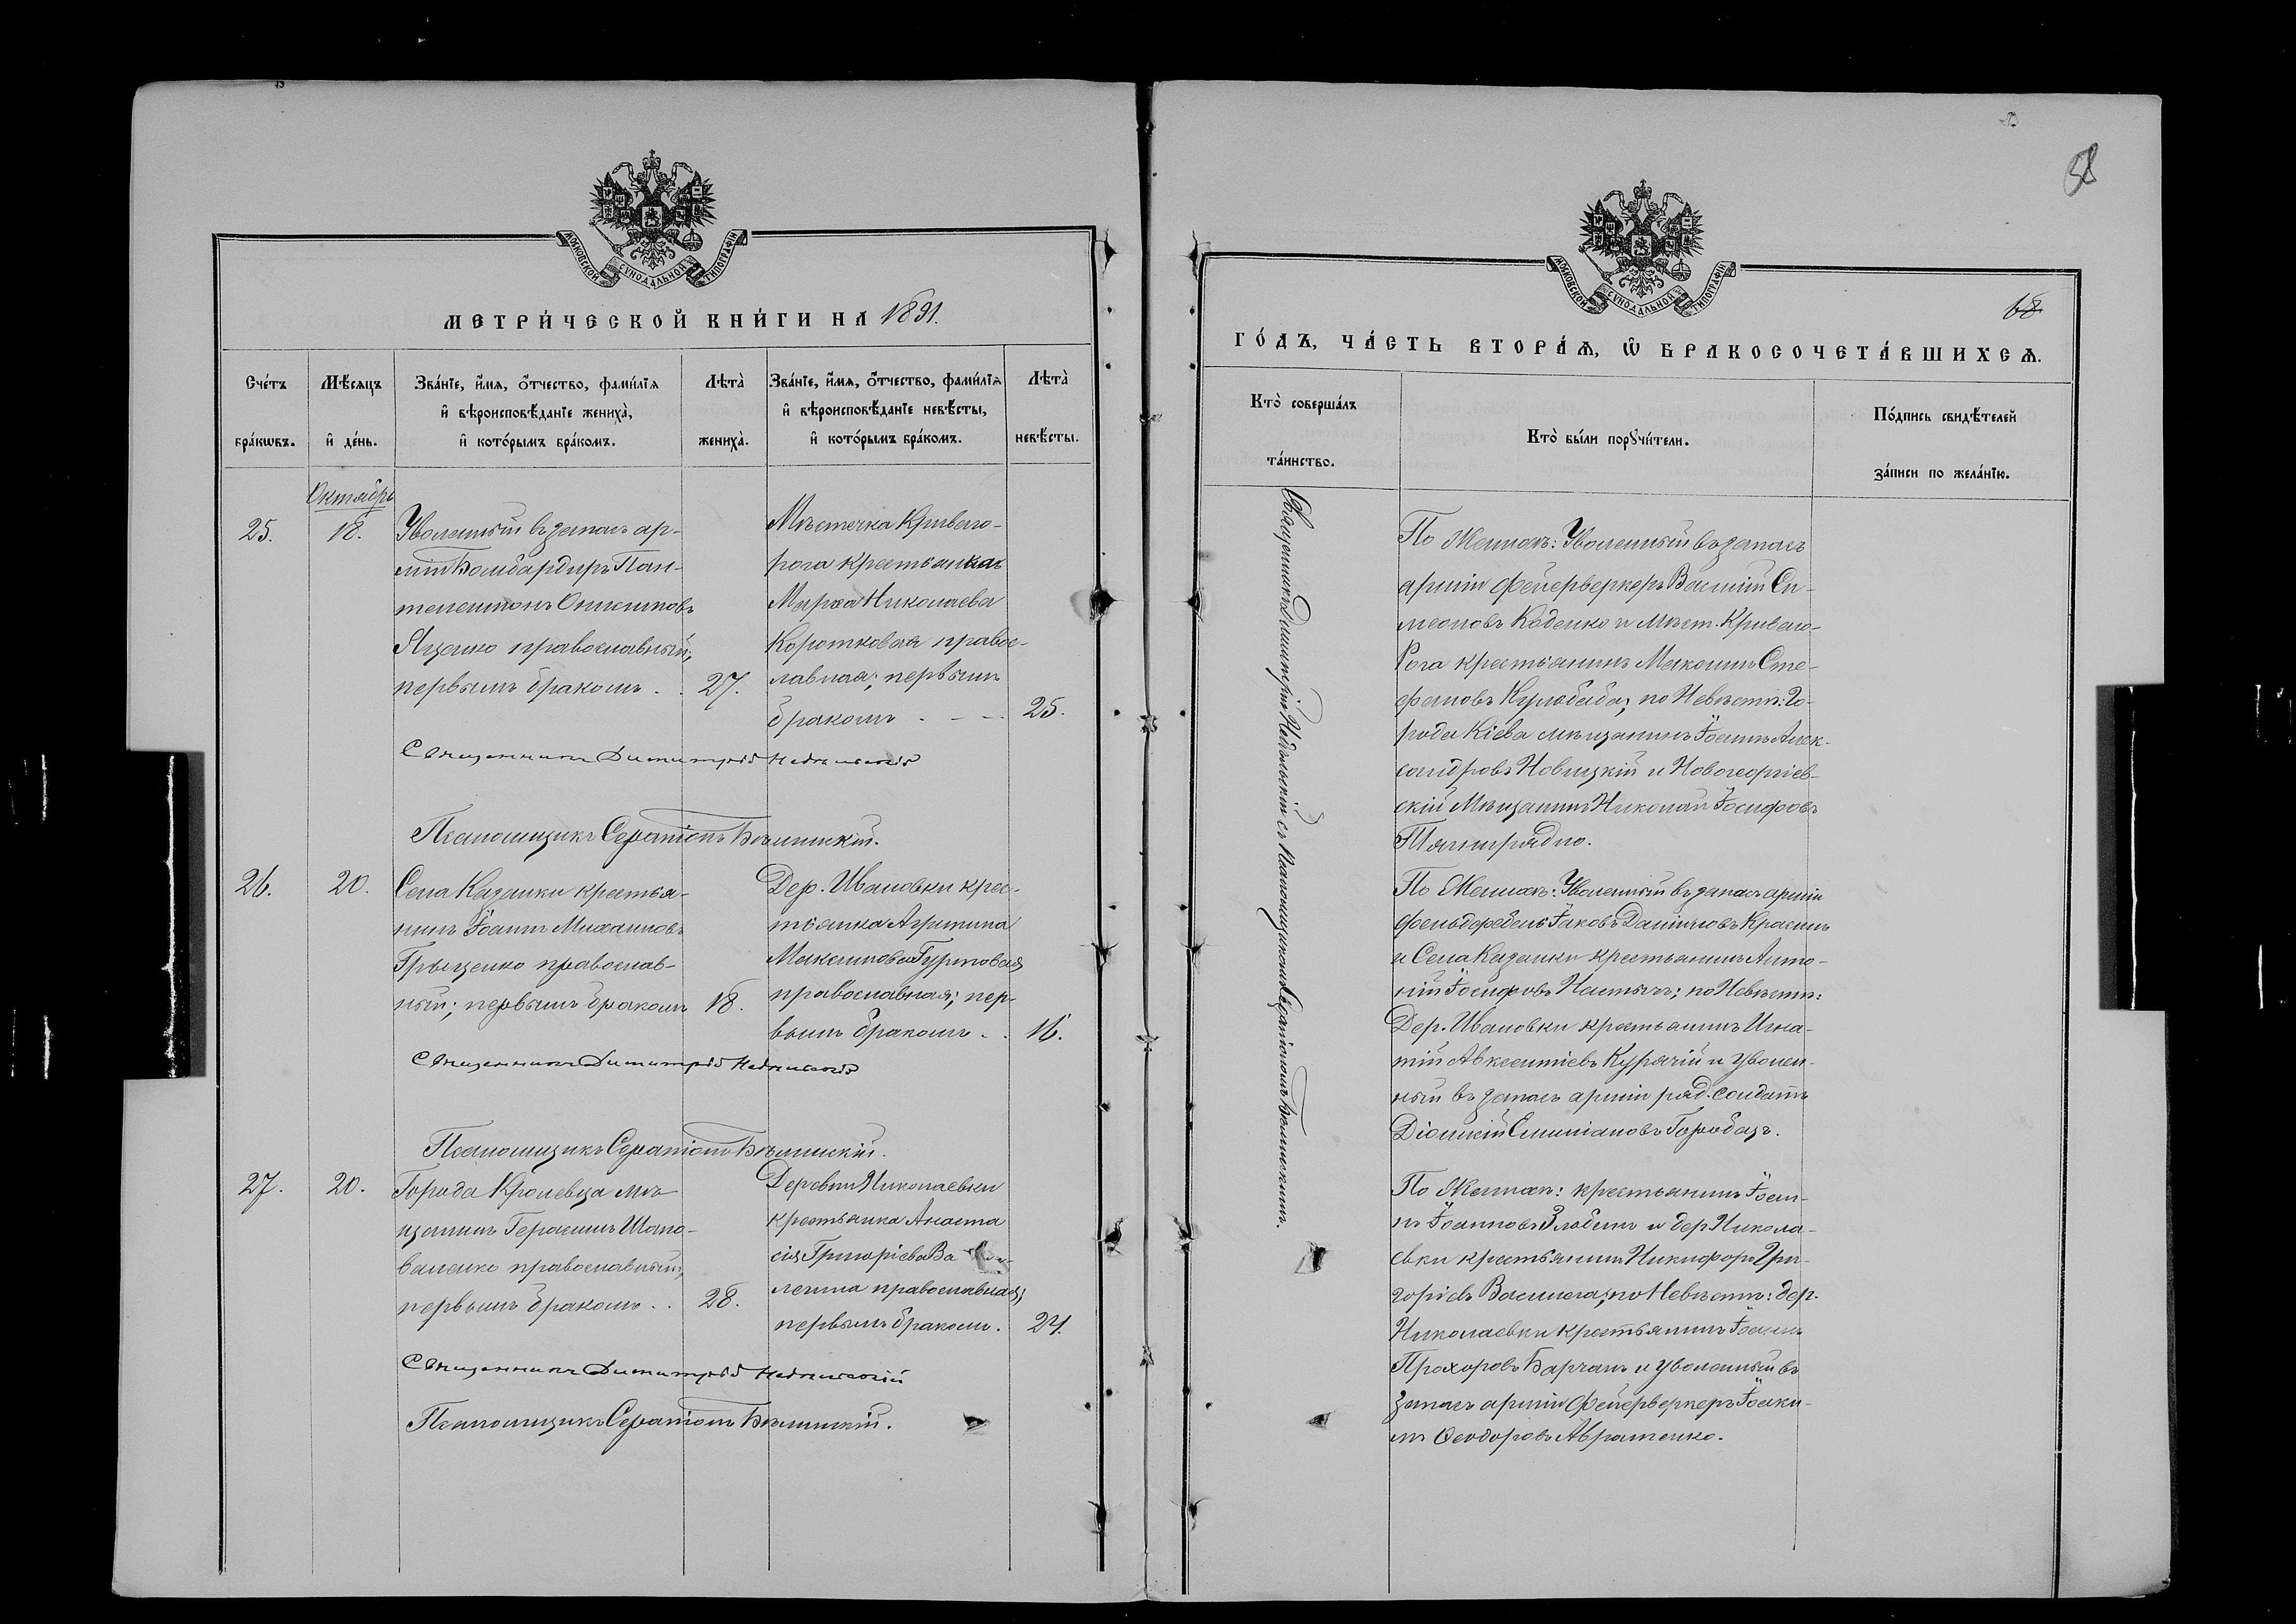 МОСКОВСКОЙ СѴНОДАЛЬНОЙ ТИПОГРАФІИ
МЕТРИ́ЧЕСКОЙ КНИ́ГИ НА 1891.
Сче́тъ бра́кωвъ.
Мѣ́сяцъ и҆ де́нь.
Зва́нїе, и҆́мя, ѻ҆́тчество, фами́лїя
и҆ вѣроисповѣ́данїе жениха̀,
и҆ кото́рымъ бра́комъ.
Лѣта̀ жениха̀.
Зва́нїе, и҆́мя, ѻ҆́тчество, фами́лїя
и҆ вѣроисповѣ́данїе невѣ́сты,
и҆ кото́рымъ бра́комъ.
Лѣта̀ невѣ́сты.
Октябрь
25.
18.
Уволенный въ запасъ ар-
міи Бомбардиръ Пан-
телеимонъ Онисимовъ
Яценко православный;
первымъ бракомъ . .
27.
Мѣстечка Криваго-
рога крестьянка
Марѳа Николаева
Короткова православ-
лавная; первымъ
бракомъ . - -
25.
Священникъ Димитрій Недѣльскій
Псаломщикъ Серапіонъ Бѣлинскій.
26.
20.
Села Казанки крестья-
нинъ Іоаннъ Михаиловъ
Грыценко православ-
ный; первымъ бракомъ
18.
Дер. Ивановки крес-
тьянка Агрипина
Максимова Гуртовая
православная; пер-
вымъ бракомъ . .
16.
Священникъ Димитрій Недѣльскій
Псаломщикъ Серапіонъ Бѣлинскій.
27.
20.
Города Кролевца мѣ-
щанинъ Герасимъ Шапо-
валенко православный;
первымъ бракомъ . .
28.
Деревни Николаевки
крестьянка Анаста
сія Григоріева Ва
православная;
первымъ бракомъ.
24.
Священникъ Димитрій Недѣльскій
Псаломщикъ Серапіонъ Бѣлинскій.
МОСКОВСКОЙ СѴНОДАЛЬНОЙ ТИПОГРАФІИ
58
18
ГО́ДЪ, ЧА́СТЬ ВТОРА́Ѧ, Ѽ БРАКОСОЧЕТА́ВШИХСѦ.
Кто̀ соверша́лъ
та́инство.
Кто̀ бы́ли порꙋчи́тели.
По́дпись свидѣ́телей
за́писи по жела́нїю.
Священникъ Димитрій Недѣльскій съ псаломщикомъ Серапіономъ Бѣлинскимъ.
По Женихѣ: Уволенный въ запасъ
арміи фейерверкеръ Василій Си-
меоновъ Коденко и Мѣст. Криваго-
Рога крестьянинъ Максимъ Сте-
фановъ Кулябаба; по Невѣстѣ: Го-
рода Кіева мѣщанинъ Іоаннъ Алек-
сандровъ Новицкій и Новогеоргіев-
скій Мѣщанинъ Николай Іосифовъ
Тягнирядно.
По Женихѣ: Уволенный въ запасъ арміи
фельдфебель Іаковъ Даниловъ Красинъ
и Села Казанки крестьянинъ Анто-
ній Іосифовъ; по Невѣстѣ:
Дер. Ивановки крестьянинъ Игна-
тій Авксентіевъ Курячій и уволен-
ный въ запасъ арміи ряд. солдатъ
Діонисій Емиліановъ Горобецъ.
По Женихѣ: крестьянинъ Іоан-
нъ Іоанновъ Злобинъ и дер Никола-
евки крестьянинъ Никифоръ Гри-
горіевъ; по Невѣстѣ: дер.
Николаевки крестьянинъ Іоаннъ
Прохоровъ Барчанъ и уволенный въ
запасъ арміи фейерверкеръ Іоаки-
мъ Ѳеодоровъ Авраменко.